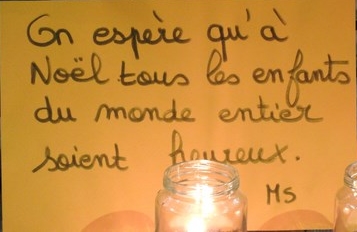 On espère qu'à
Noël tous les enfants
du monde entier
soient heureux.
MS